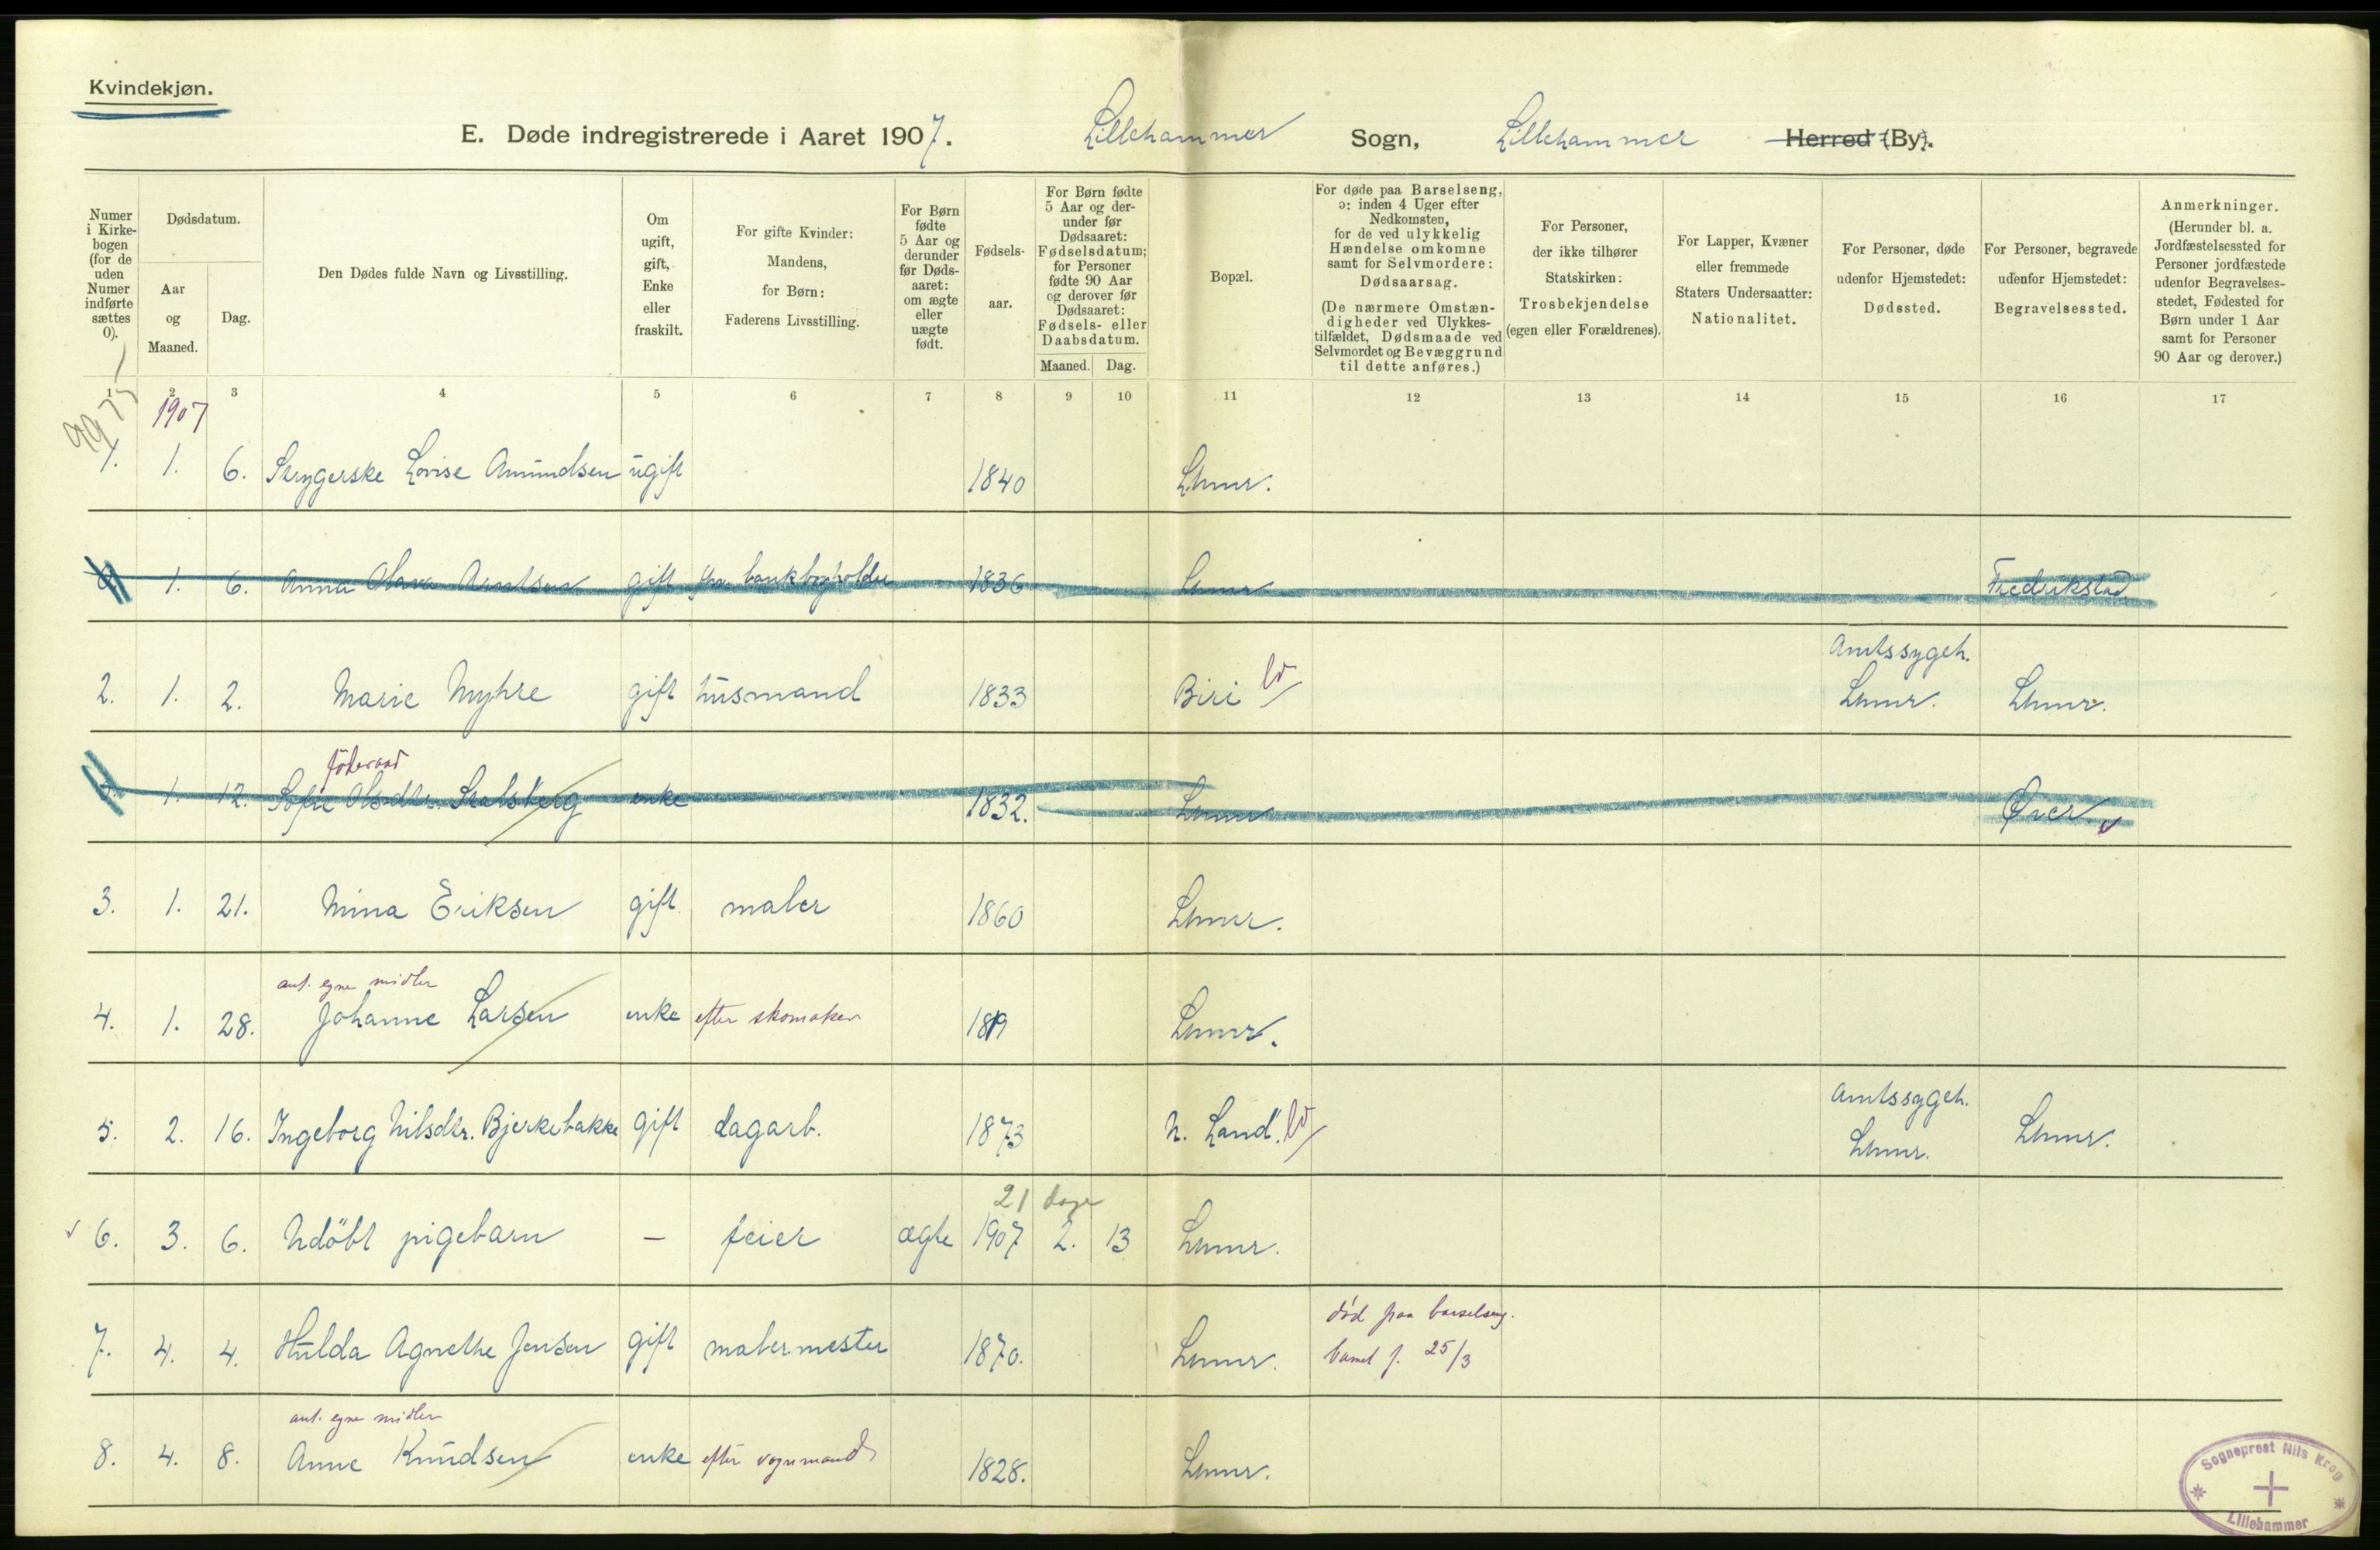 Kvindekjøn.
E. Døde indregistrerede i Aaret 1907. Lillehammer Sogn, Lillehammer Herred (By).
Numer i Kirkebogen (for de uden Numer indførte sættes 0).
Dødsdatum.
Aar og Maaned.
Dag.
Den Dødes fulde Navn og Livsstilling.
Om ugift, gift, Enke eller fraskilt.
For gifte Kvinder: Mandens, for Børn: Faderens Livsstilling.
For Børn fødte 5 Aar og derunder før Døds-aaret: om ægte eller uægte født.
Fødsels-aar.
For Børn fødte 5 Aar og der-under før Dødsaaret: Fødselsdatum; for Personer fødte 90 Aar og derover før Dødsaaret: Fødsels- eller Daabsdatum.
Maaned. Dag.
Bopæl.
For døde paa Barselseng, ɔ: inden 4 Uger efter Nedkomsten, for de ved ulykkelig Hændelse omkomne samt for Selvmordere: Dødsaarsag.
(De nærmere Omstæn-digheder ved Ulykkes-tilfældet, Dødsmaade ved Selvmordet og Bevæggrund til dette anføres.)
For Personer, der ikke tilhører Statskirken: Trosbekjendelse (egen eller Forældrenes).
For Lapper, Kvæner eller fremmede Staters Undersaatter: Nationalitet.
For Personer, døde udenfor Hjemstedet: Dødssted.
For Personer, begravede udenfor Hjemstedet: Begravelsessted.
Anmerkninger. (Herunder bl. a. Jordfæstelsessted for Personer jordfæstede udenfor Begravelses-stedet, Fødested for Børn under 1 Aar samt for Personer 90 Aar og derover.)
1 2 3 4 5 6 7 8 9 10 11 12 13 14 15 16 17
1907
1. 1. 6. Strygerske Lovise Amundsen ugift 1840 Lhmr.
1. 6. Anna Olava Arntsen gift bankbogholder 1836 Lhmr Fredrikstad
Amtssygeh.
2. 1. 2. Marie Myhre gift husmand 1833 Biri Lhmr. Lhmr.
föderaad
1. 12. Sofie Olsdtr. Skalsberg enke 1832. Lhmr Øier
3. 1. 21. Mina Eriksen gift maler 1860 Lhmr.
ant. egne midler
4. 1. 28. Johanne Larsen enke efter skomaker 1819 Lhmr.
Amtssygeh.
5. 2. 16. Ingeborg Nilsdtr. Bjerkebakke gift dagarb. 1873 N. Land. Lhmr. Lhmr.
21 dage
6. 3. 6. Udöbt pigebarn — feier ægte 1907 2. 13 Lhmr.
död paa barselseng.
7. 4. 4. Hulda Agnethe Jensen gift malermester 1870. Lhmr. barnet f. 25/3
ant. egne midler
8. 4. 8. Anne Knudsen enke efter vognmand 1828. Lhmr.
Sogneprest Nils Krog
Lillehammer